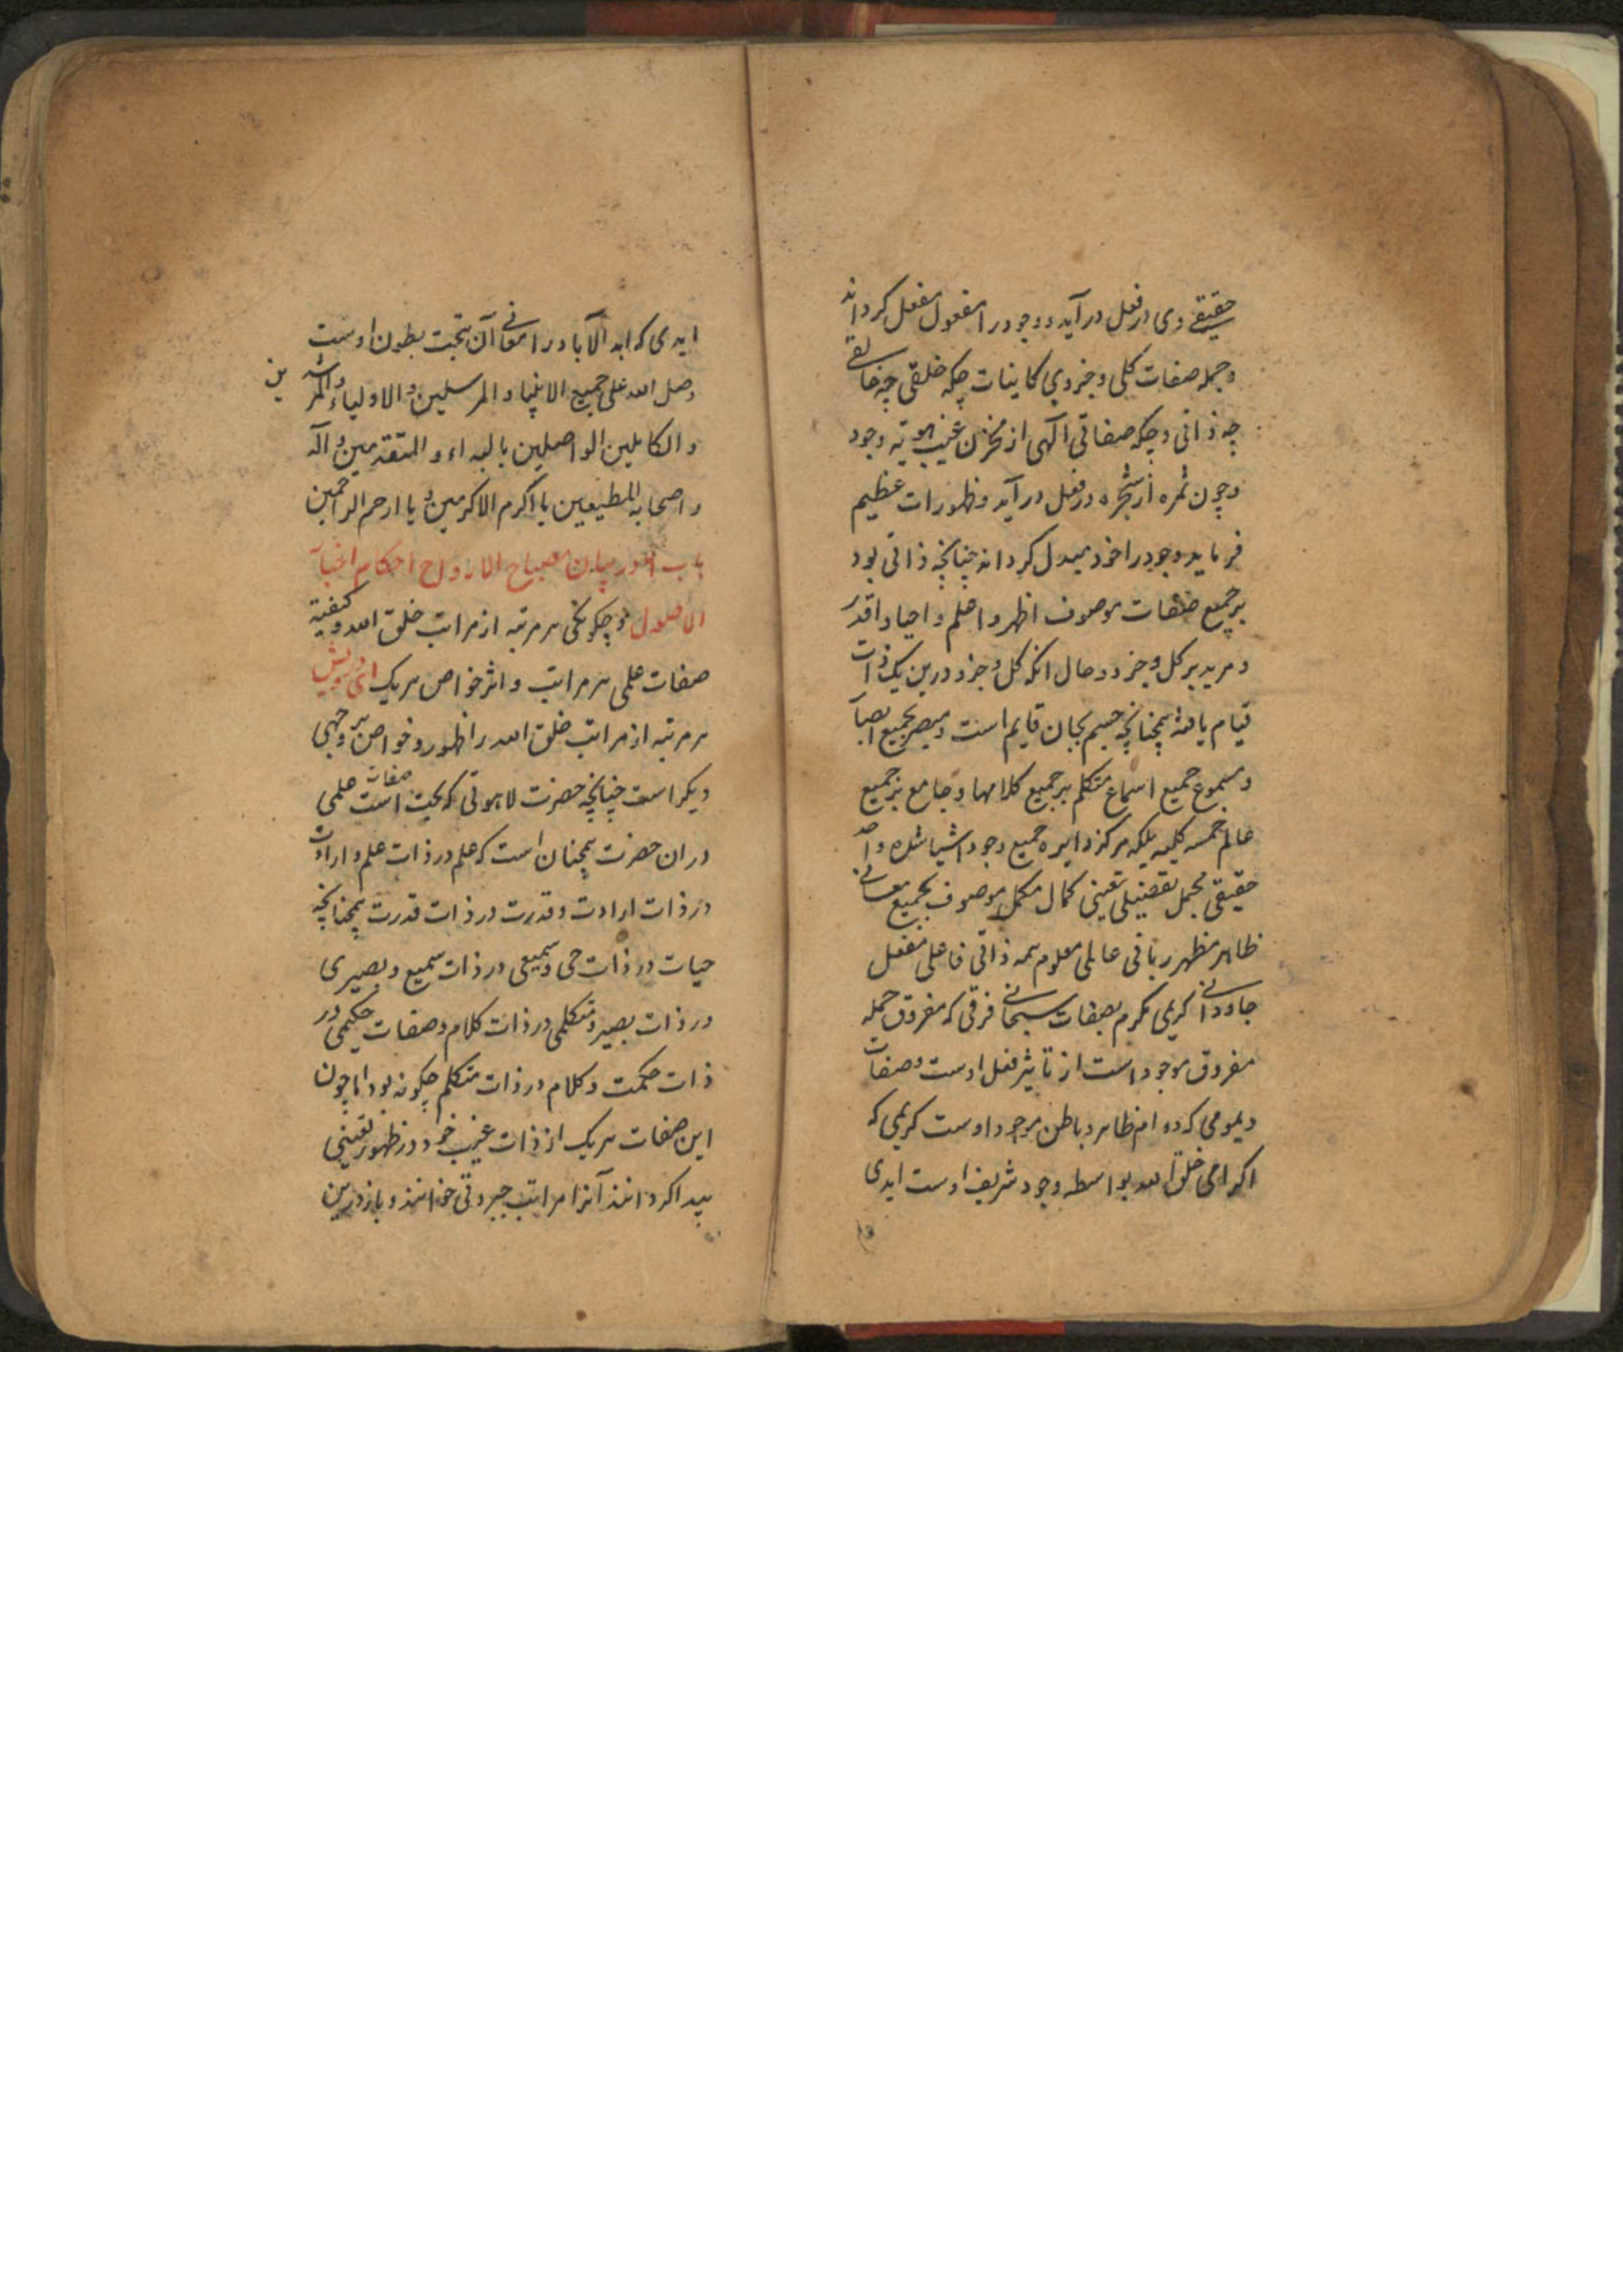 حقیقے وی در فعل در آید و وجود را مفعول مفعل کرداند
و جمله صفات کلی و جزوی کاینات چکه خلقی چه خالقے
چه ذاتی و چکه صفاتی آلهی از مخزن غیب هویة وجود
و چون ثمره از شجره در فعل در آید و ظهورات عظیم
فرماید وجود را خود مبدل کرداند چنانچه ذاتی بود
بر جمیع صفات موصوف اظهر و اعلم و احیا و اقدر
و مرید بر کل و جزو و حال انکه کل و جزو درین یک ذات
قیام یافته همچنانچه جسم بجان قایم است و مبصر بجمیع
و مسموع جمیع اسماع متکلم بر جمیع کلامها و جامع بر جمیع
عالم خمسه کلیه بلکه مرکز دایره جمیع وجود اشیا شده
حقیقی مجمل تفصیلی تعینی کمال مکمل موصوف بجمیع معانے
ظاهر مظهر ربانی عاملی معلوم همه ذاتی فاعلی مفعل
جاودانے کریمی مکرم بصفات سبحانے فرقی که مفروق جمله
مفروق موجود است از تاثیر فعل اوست و صفات
دیمومی که دوام ظاهر و باطن موجود اوست کریمی که
اکرامی خلق الله بواسطه وجود شریف اوست ابدی
ابدی که ابد الآباد را معانے آن تحت بطون اوست
و صل الله علی جمیع الانبیا و المرسلین و الاولیاء و المرشدین
و الکاملین الواصلین بالهداء و المتقدمین و آله
و اصحابه المطیعین یا اکرم الاکرمین و یا ارحم الراحمین
باب در بیان مصباح الارواح احکام
الاصول و چکونکی هر مرتبه از مراتب خلق الله و کیفیة
صفات علمی هر مراتب و اثر خواص هر یک ای درویش
هر مرتبه از مراتب خلق الله را ظهور و خواص بر وجهی
دیکر است چنانچه حضرت لاهوتی که بحت است صفات علمی
در ان حضرت همچنان است که علم در ذات علم و ارادت
در ذات ارادت و قدرت در ذات قدرت همچنانچه
حیات در ذات حی و سمیعی در ذات سمیع و بصیری
در ذات بصیر و متکلمی در ذات کلام و صفات حکیمی در
ذات حکمت و کلام در ذات متکلم چکونه بود اما چون
این صفات هر یک از ذات غیب خود در ظهور تعینی
پیدا کردانند آنرا مراتب جبروتی خوانند و باز درین